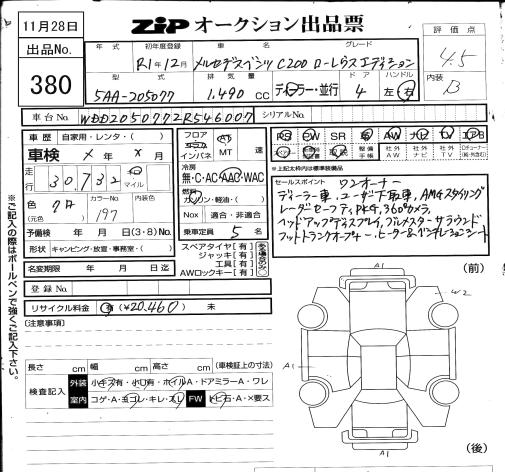 11月28日
ZiP オークション出品票
評価点
4.5
内装
B
出品No.
380
年式
初年度登録
R1年12月
車名
グレード
メルセデスベンツ C200 ローレウスエディション
型式
5AA-205077
排気量
1,490 CC
ディーラー・並行
ドア
4
ハンドル
左 右
車台No.
WDD2050772R546007
シリアルNo.
車歴
自家用・レンタ・( )
車検
年
月
走行
30,732
マイル
色
(元色)
クロ
カラーNo.
197
内装色
予備検査
年 月 日(3・8)No.
形状
キャンピング・放置・事務室・( )
名変期限
年 月 日迄
登録No.
リサイクル料金
有 (¥20,460) 未
フロア
コラム
インパネ
AT
MT
速
冷房
無・C・AC・AAC・WAC
燃料
ガソリン・軽油・( )
Nox
適合・非適合
乗車定員
5 名
スペアタイヤ[有]
ジャッキ[有]
工具[有]
AWロックキー[有]
PS
PW
SR
AW
ナビ
TV
エアB
整備手帳
社外AW
社外ナビ
社外TV
※上記太枠内は標準装備品
セールスポイント
ワンオーナー
ディーラー車、ユーザー下取車、AMGスタイリング
レーダーセーフティPKG, 360°カメラ,
ヘッドアップディスプレイ, ブルメスターサラウンド
フットトランクオープナー, ヒーター&ベンチレーションシート
[注意事項]
長さ cm 幅 cm 高さ cm (車検証上の寸法)
検査記入
外装
小キズ有・小凹有・ホイルA・ドアミラーA・ワレ
室内
コゲ・A・ヨゴレ・キレ・スレ
FW
トビ石・A・X要ス
(前)
A1
W2
A1
A1
(後)
◎ご記入の際はボールペンで強くご記入下さい。